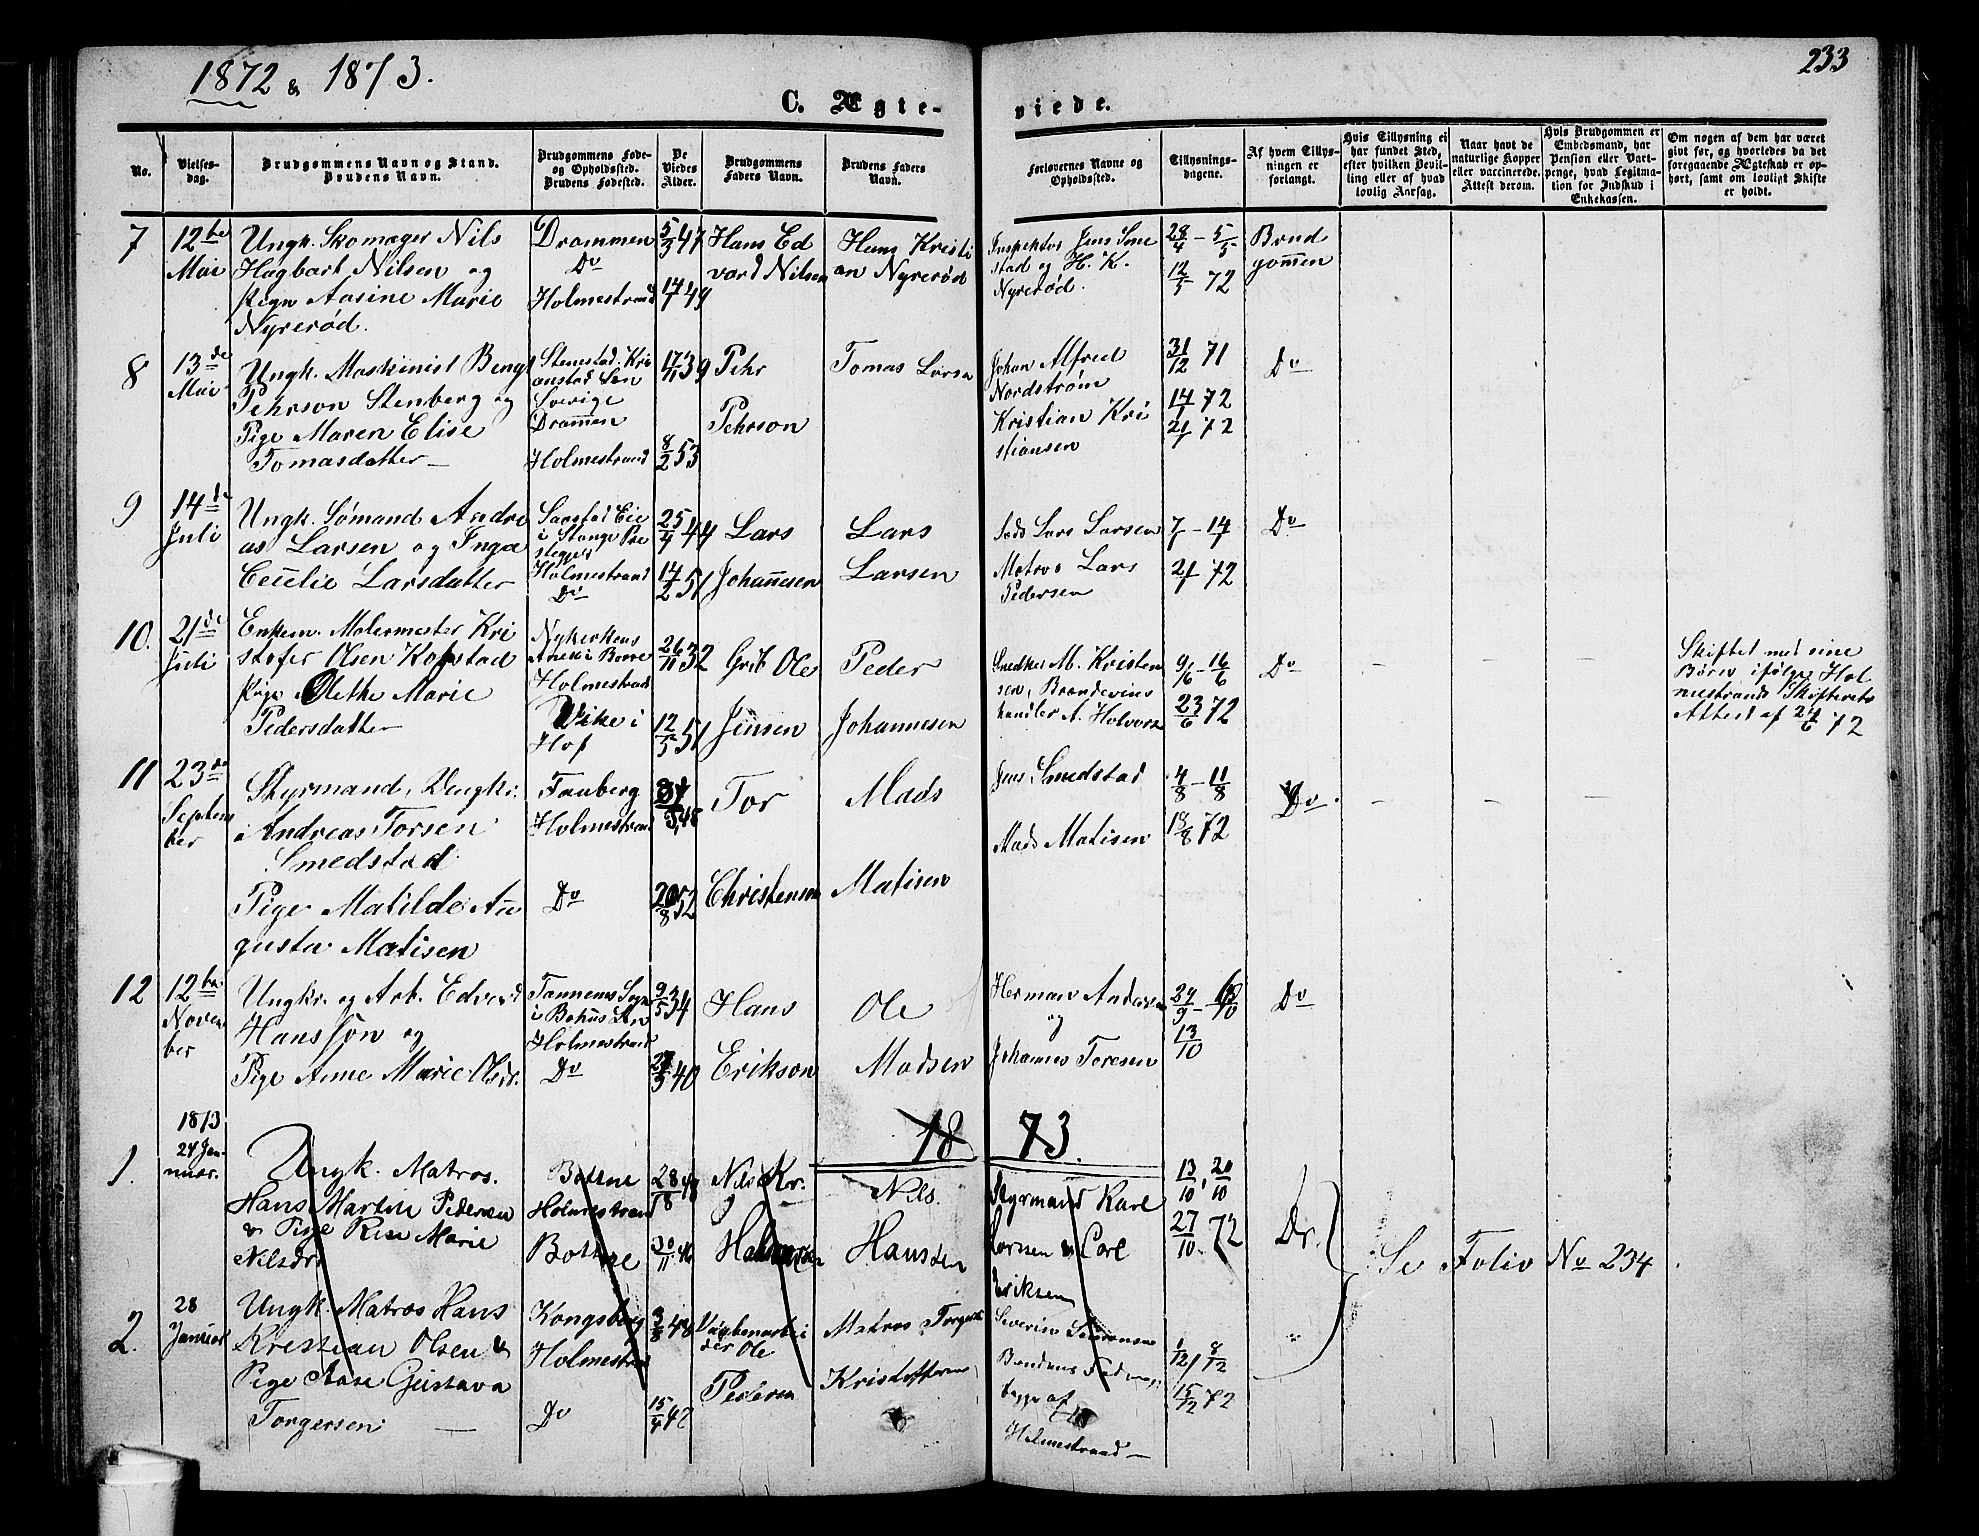 1872 & 1873.
233
C. Ægte-
viede.
No.
Vielses-
dag.
Brudgommens Navn og Stand.
Brudens Navn.
Brudgommens Føde-
og Opholdssted.
Brudens Fødested.
De
Viedes
Alder.
Brudgommens
Faders Navn.
Brudens Faders
Navn.
Forlovernes Navne og
Opholdssted.
Tillysnings-
dagene.
Af hvem Tillys-
ningen er
forlangt.
Hvis Tillysning ei
har fundet Sted,
efter hvilken Bevil-
ling eller af hvad
lovlig Aarsag.
Naar havt de
naturlige Kopper
eller vaccinerede.
Attest derom.
Hvis Brudgommen er
Embedsmand, har
Pension eller Vart-
penge, hvad Legitima-
tion for Indskud i
Enkekassen.
Om nogen af dem har været
givt før, og hvorledes da det
foregaaende Ægteskab er op-
hørt, samt om lovligt Skifte
er holdt.
7
12te
Mai
Ungk. Skomager Nils
Hagbart Nilsen og
Pige Aasine Marie
Nyrerød.
Drammen
Do
Holmestrand
5/3 47
14/7 49
Hans Ed
vard Nilsen
Hans Kristi
an Nyrerød
Inspektør Jens Sme
stad og H. K.
Nyrerød.
28/4 - 5/5
12/5 72
Brud
gommen
8
13de
Mai
Ungk. Maskinist Bengt
Pehrson Stenberg og
Pige Maren Elise
Tomasdatter
Stenestad, Kri
anstad Len
Sverige
Drammen
Holmestrand
17/11 39
8/2 53
Pehr
Pehrson
Tomas Larsen
Johan Alfred
Nordstrøm
Kristian Kri
stiansen
31/12 71
14/1 72
21/1 72
Do
9
14de
Juli
Ungk. Sømand Andre
as Larsen og Inga
Cecelie Larsdatter
Saastad Eie
i Stange Præ
stegjeld
Holmestrand
Do
44
14/2 51
Lars
Johannesen
Lars
Larsen
Lars Larsen
Matros Lars
Pedersen
7 - 14/7
21/7 72
Do
10.
21de
Juli
Enkem. Malermester Kri
stofer Olsen Kopstad
Pige Olethe Marie
Pedersdatter
Nykirkens
Anex i Borre
Holmestrand
Vike i
Hof
26/11 32
12/5 51
Ole
Jensen
Peder
Johannesen
Snedker M. Kristen
sen, Brændevins
handler A. Holvorsen
9/6 - 16/6
23/6 72
Do
Skiftet med sine
Børn ifølge Hol
mestrands Skifterets
Attest af 24/6 72
11
23de
Septem
ber
Styrmand, Ungk.
Andreas Torsen
Smedstad
Pige Matilde Au
gusta Matisen
Fauberg
Holmestrand
Do
20/8 52
Tor
Christensen
Mads
Matisen
Jens Smedstad
Mads Matisen
4/8 - 11/8
18/8 72
Do
12
12te
Novem
ber
Ungkr. og Arb. Edvard
Hansson og
Pige Anne Marie Olsdr.
Tannems Sogn
i Bohus Len
Holmestrand
Do
9/5 34
40
Hans
Erikson
Ole
Madsen
Herman Andersen
og
Johannes Toresen
29/9 - 6/10
13/10
Do
1873
1873.
1.
24 Jan-
nuar.
Ungk. Matros.
Hans Martin Pedersen
& Pige Rise Marie
Nilsdr.
Bottne
Holmestrand
Bottne
28/8 48
30/11 46
Nils Kr.
Nils.
Hansen
Styrmand Karl
Larsen & Carl
Eriksen
13/10, 20/10
27/10 72
Do.
Se Folio No 234
2.
28
Januar
Ungk. Matros Hans
Kristian Olsen &
Pige Aase Gustava
Torgersen
Kongsberg
Holmestrand
Do
48
15/4 42
Ole
Pedersen
Matros Torger
Kristoffersen
Severin Simonsen
Brudens Fader
begge af
Holmestrand
1/12, 8/12
15/12 72